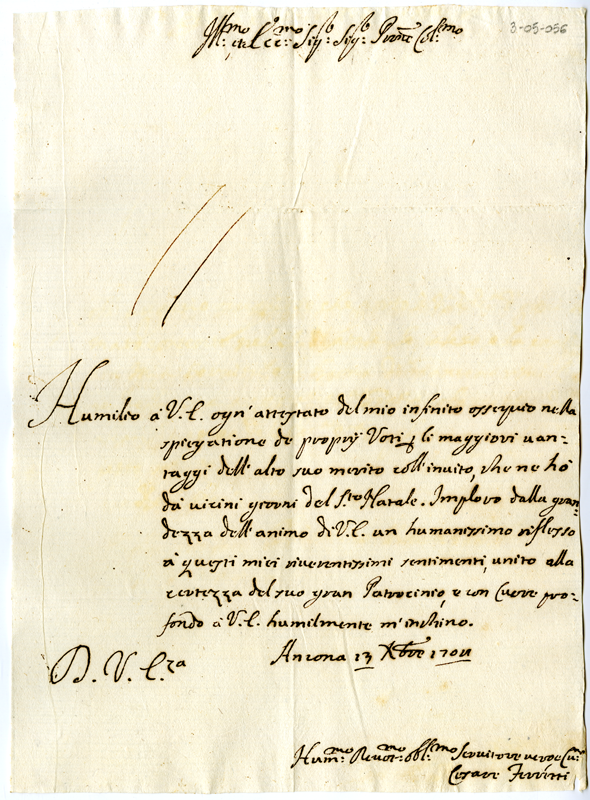 Ill:mo et Ecc:mo Sig:r Sig:r Prone Col:mo
3-05-056
Humilio à V.E. ogn' attestato del mio infinito ossequio nella
spiegatione de proprij Voti p li maggiori uan-
taggi dell' alto suo merito coll' inuito, che ne hò
dà uicini giorni del S.to Natale. Imploro dalla gran-
dezza dell' animo di V.E. un humanissimo riflesso
à questi miei riuerentissimi sentimenti, unito alla
certezza del suo gran Patrocinio, e con Cuore pro-
fondo à V.E. humilmente m' inchino.
D. V. E.za
Ancona 13 Xbre
Hum:mo Deuot:mo obl:mo Seruitore
Cesare Ferretti